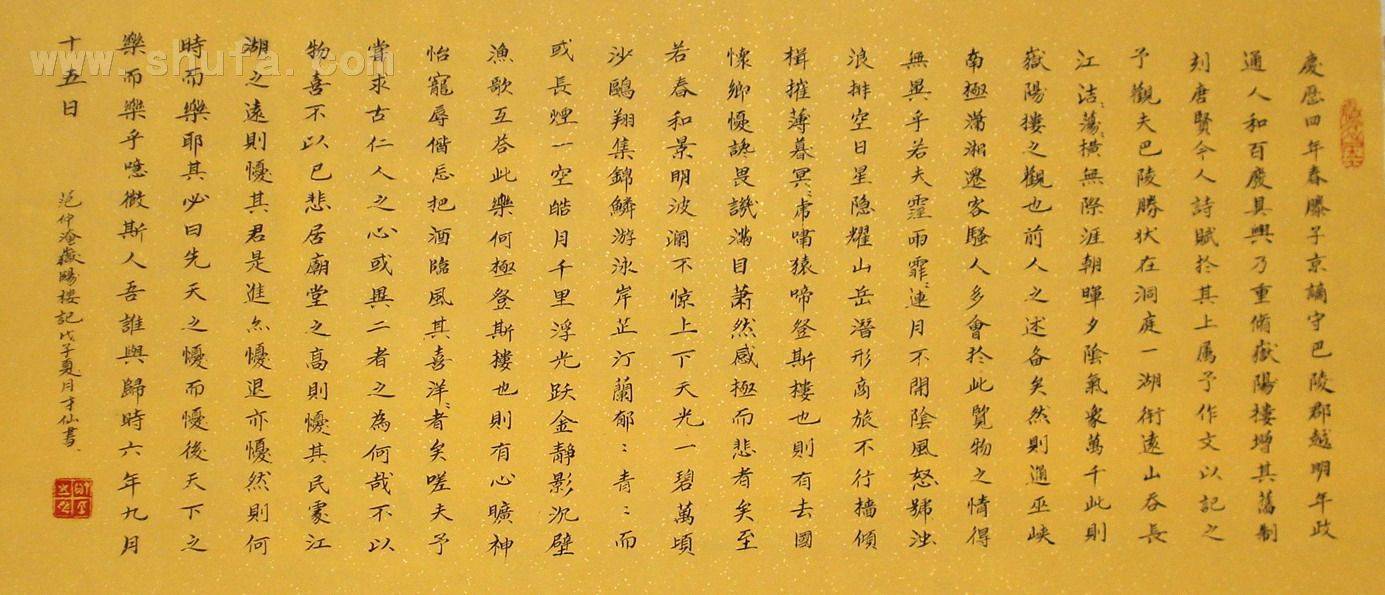 慶歷四年春滕子京謫守巴陵郡越明年政
通人和百廢具興乃重脩嶽陽樓增其舊制
刻唐賢今人詩賦於其上属予作文以記之
予觀夫巴陵勝狀在洞庭一湖銜遠山吞長
江浩〻蕩〻橫無際涯朝暉夕陰氣象萬千此則
嶽陽樓之觀也前人之述备矣然則通巫峡
南極瀟湘遷客騷人多會於此覽物之情得
無異乎若夫霪雨霏〻連月不開陰風怒號浊
浪排空日星隐耀山岳潛形商旅不行檣傾
楫摧薄暮冥〻虎嘯猿啼登斯樓也則有去國
懷鄉懮讒畏譏滿目萧然感極而悲者矣至
若春和景明波澜不惊上下天光一碧萬頃
沙鷗翔集錦鱗游泳岸芷汀蘭郁〻青〻而
或長煙一空皓月千里浮光跃金靜影沉壁
漁歌互答此樂何極登斯樓也則有心曠神
怡寵辱偕忘把酒臨風其喜洋〻者矣嗟夫予
嘗求古仁人之心或異二者之為何哉不以
物喜不以己悲居廟堂之高則懮其民處江
湖之遠則懮其君是進亦懮退亦懮然則何
時而樂耶其必曰先天之懮而懮後天下之
樂而樂乎噫微斯人吾誰與歸時六年九月
十五日
范仲淹嶽陽樓記戊子夏月才仙書
www.shufa.com